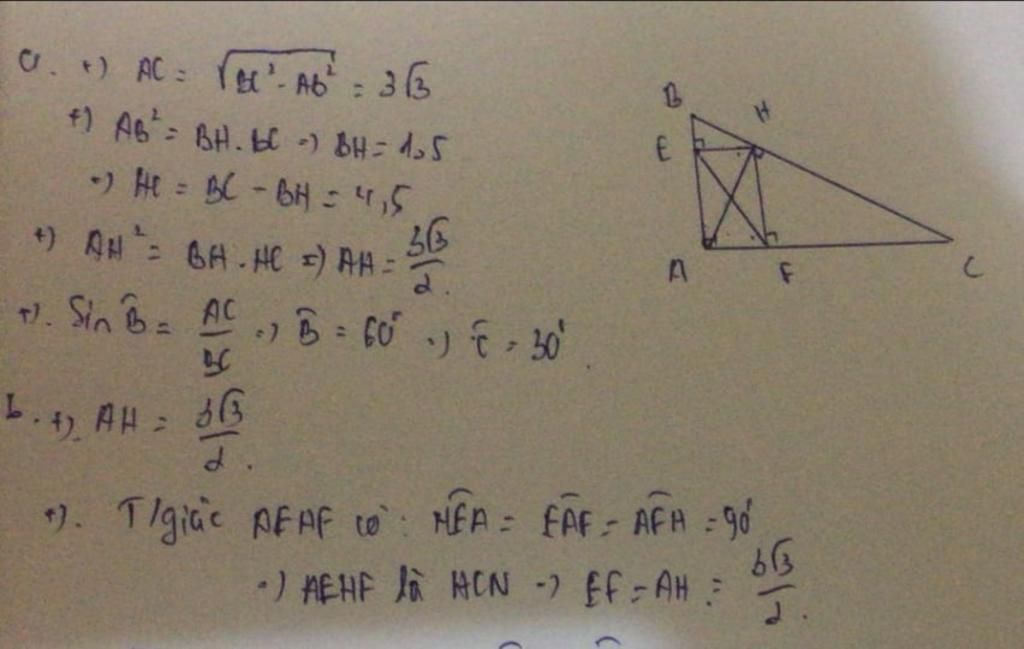 a. +) AC = √(BC² - AB²) = 3√3
+) AB² = BH.BC => BH = 1,5
=> HC = BC - BH = 4,5
+) AH² = BH.HC => AH = 3√3/2.
+). Sin B̂ = AC/BC => B̂ = 60° => Ĉ = 30°.
b. +). AH = 3√3/2.
+). T/giác AEAF có: HÊA = EÂF = AF̂H = 90°
=> AEHF là HCN => EF = AH = 3√3/2.
B
H
E
A
F
C